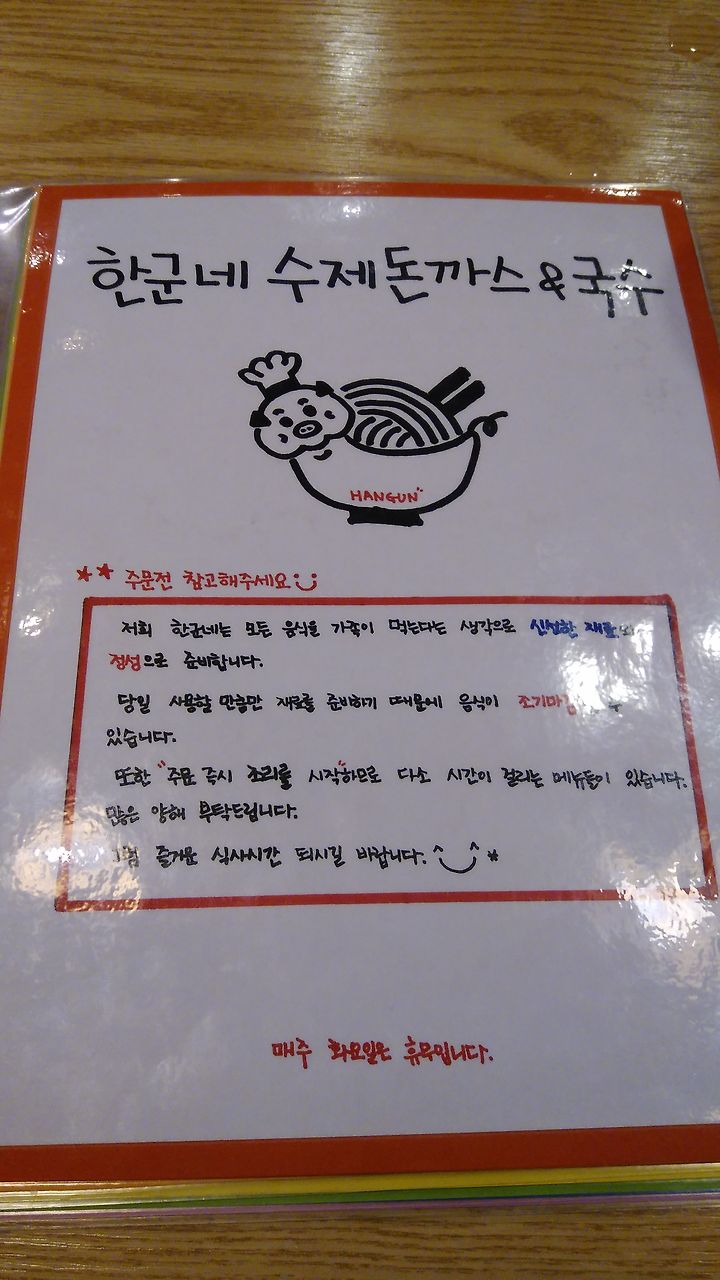 한군네 수제돈까스 & 국수
HANGUN
** 주문전 참고해주세요
저희 한군네는 모든 음식을 가족이 먹는다는 생각으로 신선한 재료와
정성으로 준비합니다.
당일 사용할 만큼만 재료를 준비하기 때문에 음식이 조기마감
있습니다.
또한 "주문 즉시 조리를 시작"하므로 다소 시간이 걸리는 메뉴들이 있습니다.
많은 양해 부탁드립니다.
그럼 즐거운 식사시간 되시길 바랍니다. ^‿^ *
매주 화요일은 휴무입니다.